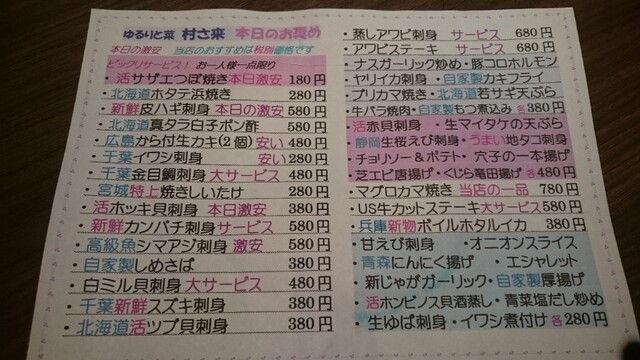 ゆるりと菜 村さ来 本日のお奨め
本日の激安 当店のおすすめは税別価格です
ビックリサービス！お一人様一点限り
・活サザエつぼ焼き本日激安 180円
・北海道ホタテ浜焼き 280円
・新鮮皮ハギ刺身 本日の激安 580円
・北海道真タラ白子ポン酢 580円
・広島から付生カキ(2個)安い 480円
・千葉イワシ刺身 安い 280円
・千葉金目鯛刺身 大サービス 480円
・宮城特上焼きしいたけ 280円
・活ホッキ貝刺身 本日激安 380円
・新鮮カンパチ刺身サービス 580円
・高級魚シマアジ刺身 激安 580円
・自家製しめさば 380円
・白ミル貝刺身 大サービス 480円
・千葉新鮮スズキ刺身 380円
・北海道活ツブ貝刺身 380円
・蒸しアワビ刺身 サービス 680円
・アワビステーキ サービス 680円
・ナスガーリック炒め・豚コロホルモン
・ヤリイカ刺身・自家製カキフライ
・ブリカマ焼き・北海道若サギ天ぷら
・牛バラ焼肉・自家製もつ煮込み 各380円
・活赤貝刺身 ・生マイタケの天ぷら
・静岡生桜えび刺身・うまい地タコ刺身
・チョリソー＆ポテト・穴子の一本揚げ
・芝エビ唐揚げ・くじら竜田揚げ 各480円
・マグロカマ焼き 当店の一品 780円
・US牛カットステーキ大サービス580円
・兵庫新物ボイルホタルイカ 380円
・甘えび刺身 ・オニオンスライス
・青森にんにく揚げ ・エシャレット
・新じゃがガーリック・自家製厚揚げ
・活ホンビノス貝酒蒸し・青菜塩だし炒め
・生ゆば刺身・イワシ煮付け 各280円